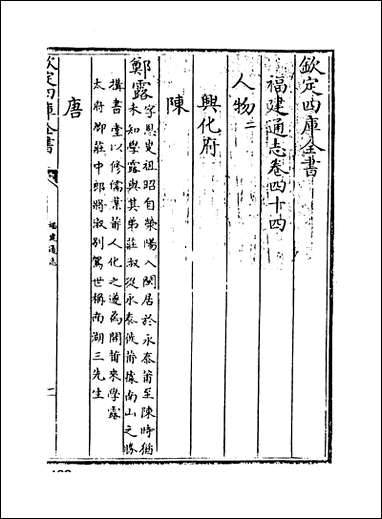 欽定四庫全書
福建通志卷四十四
人物二
興化府
陳
鄭露字恩叟祖昭自滎陽入閩居於永泰莆至陳時猶
未知學露與其弟莊叔從永泰徙莆據南山之勝
構書堂以修儒業莆人化之遂為開莆來學露
太府卿莊中郎將淑別駕世稱南湖三先生
唐
欽定四庫全書
福建通志